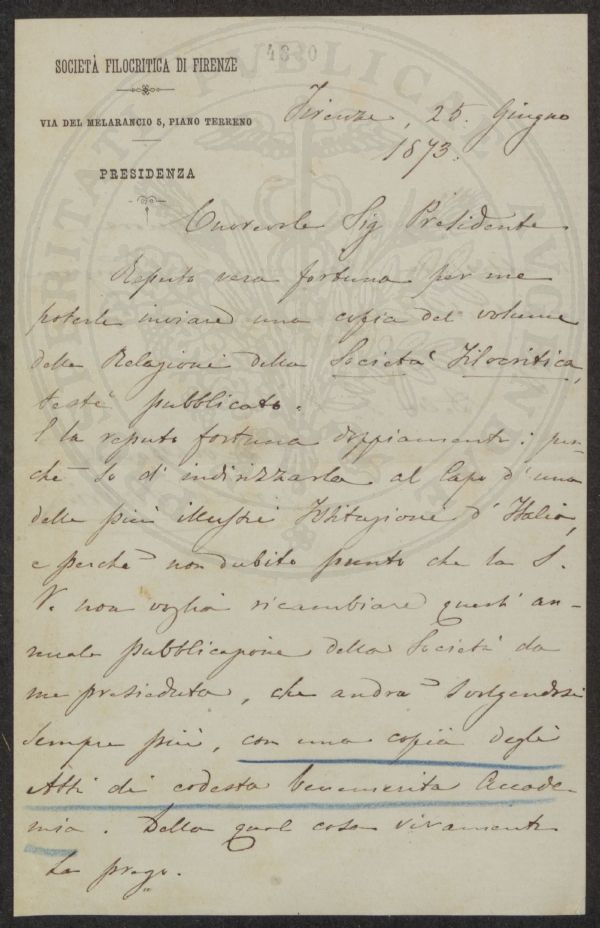 4630
SOCIETÀ FILOCRITICA DI FIRENZE
VIA DEL MELARANCIO 5, PIANO TERRENO
PRESIDENZA
Firenze, 25. Giugno
1873.
Onorevole Sig Presidente
Reputo vera fortuna per me
poterle inviare una copia del volume
delle Relazioni della Società Filocritica,
testè pubblicato.
E la reputo fortuna doppiamente: per-
chè so d'indirizzarla al Capo d'una
delle più illustri Istituzioni d'Italia,
e perchè non dubito punto che la S.
V. non voglia ricambiare quest'an-
nuale pubblicazione della Società da
me presieduta, che andrà svolgendosi
sempre più, con una copia degli
Atti di codesta benemerita Accade-
mia. Della qual cosa vivamente
La prego.